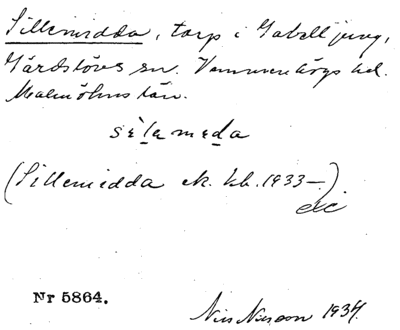 Sillemidda, torp i Gabelljung,
Gärdslövs sn. Vemmenhögs hd.
Malmöhus län.
sèlameda
(Sillemidda ek. kb. 1933–)
etc
Nr 5864.
Nils Nilsson 1934.